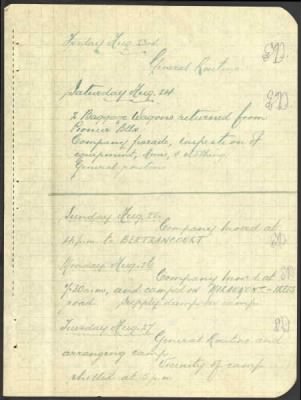 Friday Aug. 23rd
General Routine
Saturday Aug. 24
2 Baggage Wagons returned from
Pioneer Btln
Company parade, inspection of
equipment, Arms, & clothing
General routine
Sunday Aug. 25
Company moved at
4 p.m to BERTRANCOURT
Monday Aug. 26
Company moved at
7.30 a.m, and camped on
road Supply dump
Tuesday Aug. 27
General Routine and
arranging camp.
Vicinity of camp
shelled at 5 p.m